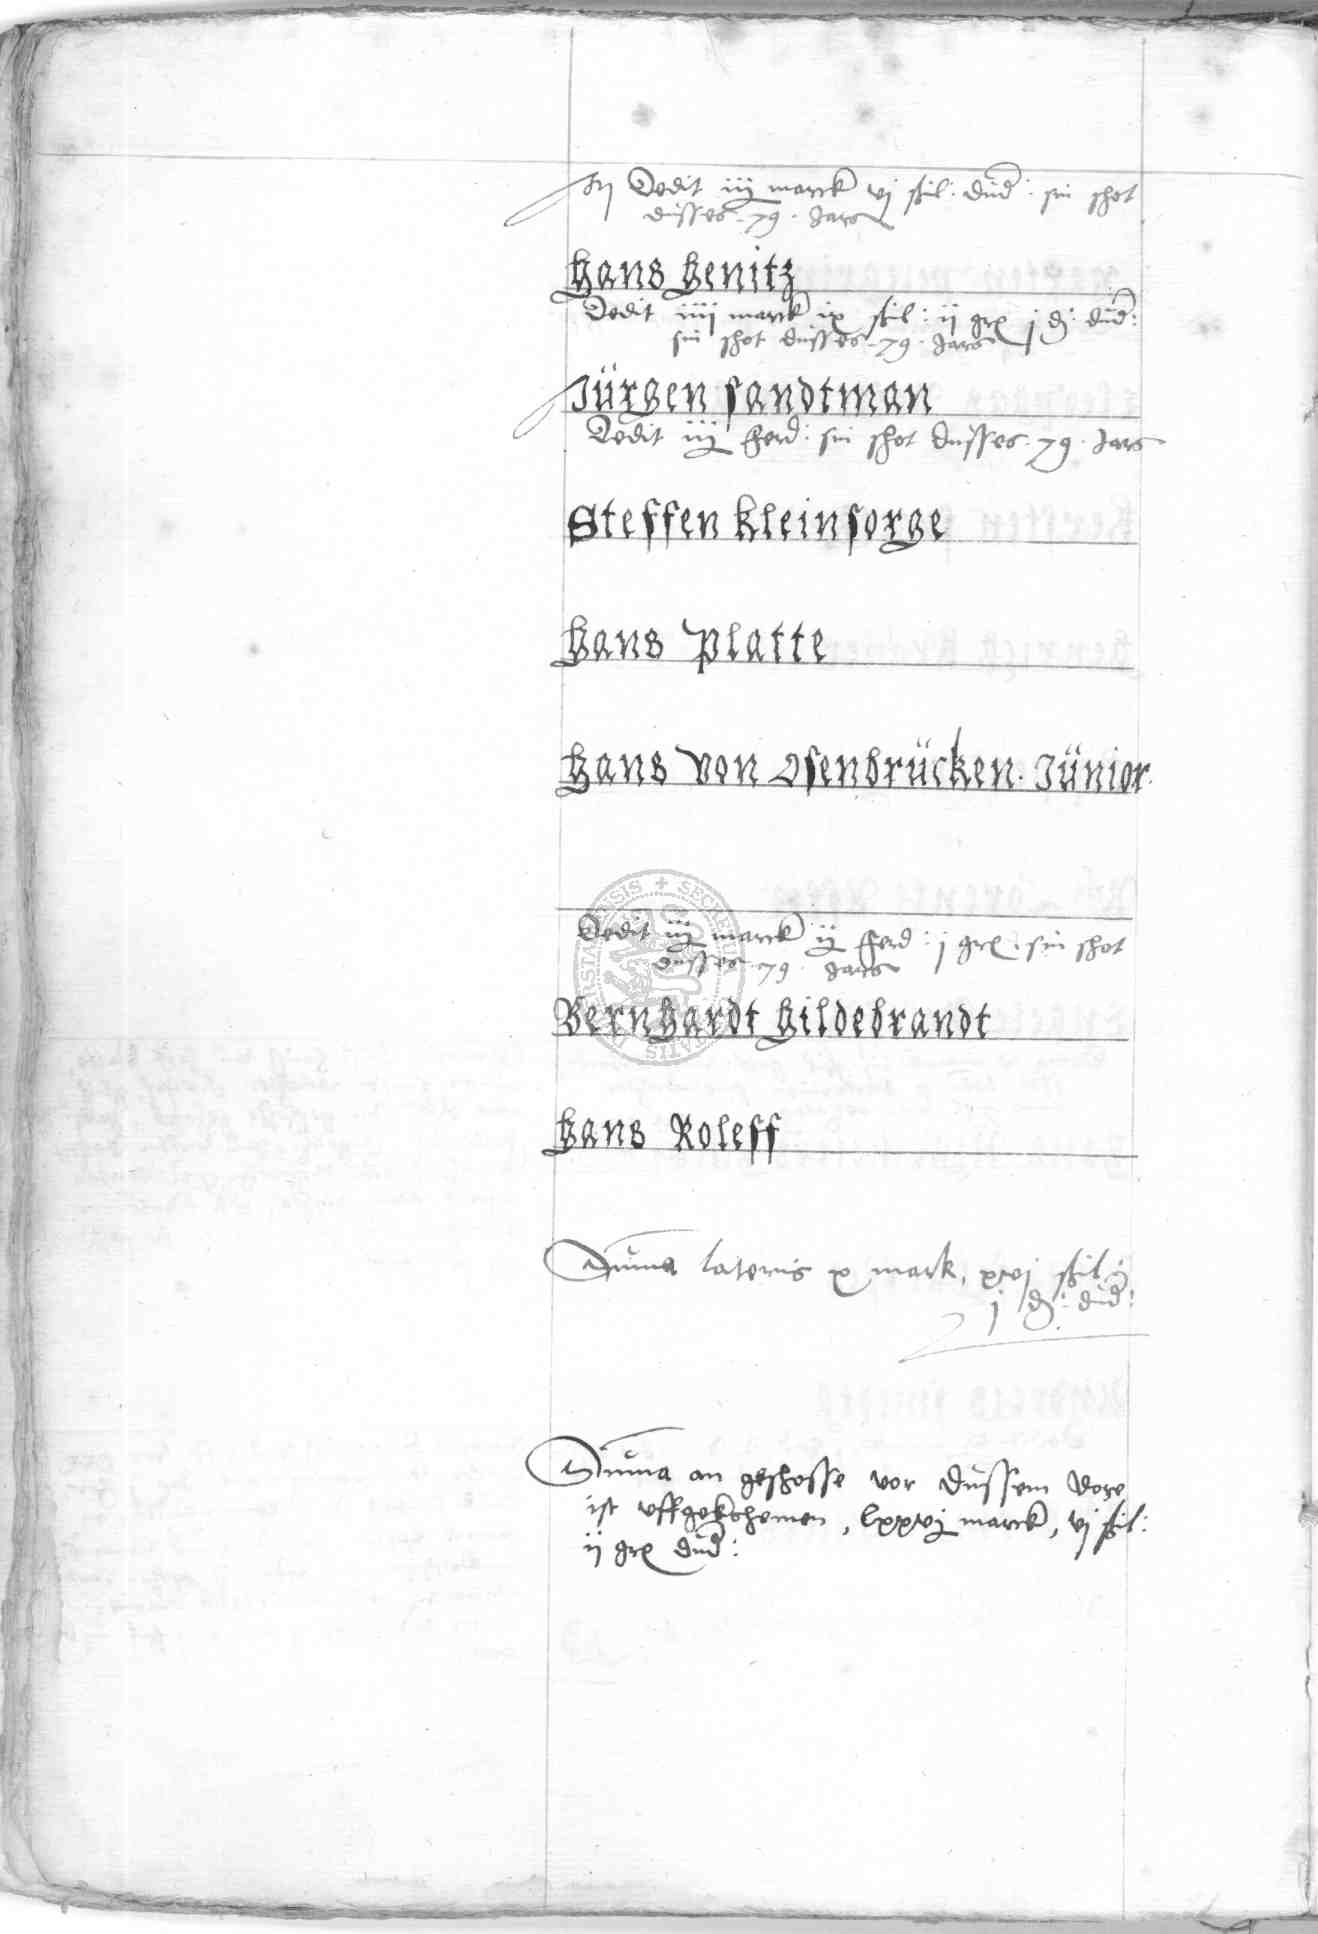 Dedit iij marck vj ßil: düd: sin schot
düsses .79. Jars
Hans Henitz
Dedit iiij marck ix ßil: ij grx j d: düd:
sin schot düsses .79. Jars
Jürgen Sandtman
Dedit iij fferd: sin schot düsses .79. Jars
Steffen Kleinsorge
Hans Platte
Hans von Osenbrücken. Jünior.
Dedit iij marck ij fferd: j grx. sin schot
düsses .79. Jars
Bernhardt Hildebrandt
Hans Roleff
Suma lateris x mark, xvj ßil:
j d: düd:
Suma an geschosse vor düssem Dore
ist uffgekohemen, lxxvj marck, vj ßil:
ij grx düd: